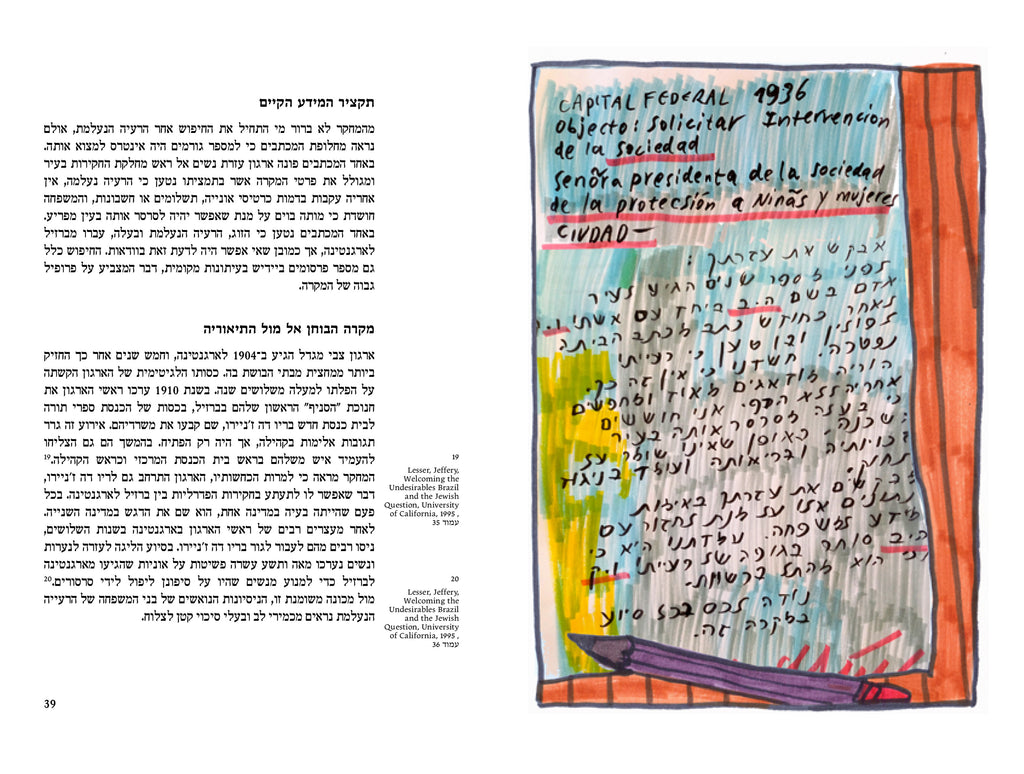 CAPITAL FEDERAL 1936
Objecto: Solicitar Intervención
de la sociedad
Senõra presidenta de la sociedad
de la protecsión a Niñas y mujeres
CIUDAD—
אבקש את עזרתך :
לפני מספר שנים הגיע לעיר
אדם בשם ה.ב ביחד עם אשתו ו.ק
לאחר כחודש כתב מכתב הביתה
לפולין ובו טען כי רעייתו
נפטרה. חשדנו כי אין זה כך.
הוריה מודאגים מאוד ומחפשים
אחריה ללא הרף. אני חוששים
כי בעלה מסרסר אותה בעיר
שכנה, באופן שאינו שומר על
זכויותיה ובריאותה ועומד בניגוד
לחוק.
מבקשים את עזרתך באימות
נתונים אלו על מנת לחזור עם
מידע למשפחה. עמדתנו היא כי
ה.ב סוחר בגופה של רעייתו ו.ק
וכי הוא מהתל ברשויות.
נודה לכם בכל סיוע
במקרה זה.
תקציר המידע הקיים
מהמחקר לא ברור מי התחיל את החיפוש אחר הרעיה הנעלמת, אולם
נראה מחלופת המכתבים כי למספר גורמים היה אינטרס למצוא אותה.
באחד המכתבים פונה ארגון עזרת נשים אל ראש מחלקת החקירות בעיר
ומגולל את פרטי המקרה אשר בתמציתו נטען כי הרעיה נעלמה, אין
אחריה עקבות בדמות כרטיסי אונייה, תשלומים או חשבונות, והמשפחה
חושדת כי מותה בוים על מנת שאפשר יהיה לסרסר אותה בעין מפריע.
באחד המכתבים נטען כי הזוג, הרעיה הנעלמת ובעלה, עברו מברזיל
לארגנטינה, אך כמובן שאי אפשר היה לדעת זאת בוודאות. החיפוש כלל
גם מספר פרסומים ביידיש בעיתונות מקומית, דבר המצביע על פרופיל
גבוה של המקרה.
מקרה הבוחן אל מול התיאוריה
ארגון צבי מגדל הגיע ב־1904 לארגנטינה, וחמש שנים אחר כך החזיק
ביותר ממחצית מבתי הבושת בה. כסותו הלגיטימית של הארגון הקשתה
על הפלתו למעלה משלושים שנה. בשנת 1910 ערכו ראשי הארגון את
חנוכת "הסניף" הראשון שלהם בברזיל, בכסות של הכנסת ספרי תורה
לבית כנסת חדש בריו דה ז'ניירו, שם קבעו את משרדיהם. אירוע זה גרר
תגובות אלימות בקהילה, אך היה רק הפתיח. בהמשך הם גם הצליחו
להעמיד איש משלהם בראש בית הכנסת המרכזי וכראש הקהילה.19
המחקר מראה כי למרות הכחשותיו, הארגון התרחב גם לריו דה ז'ניירו,
דבר שאפשר לו לתעתע בחקירות הפדרליות בין ברזיל לארגנטינה. בכל
פעם שהייתה בעיה במדינה אחת, הוא שם את הדגש במדינה השנייה.
לאחר מעצרים רבים של ראשי הארגון בארגנטינה בשנות השלושים,
ניסו רבים מהם לעבור לגור בריו דה ז'ניירו. בסיוע הליגה לעזרה לנערות
ונשים נערכו מאה ותשע עשרה פשיטות על אוניות שהגיעו מארגנטינה
לברזיל כדי למנוע מנשים שהיו על סיפונן ליפול לידי סרסורים.20
מול מכונה משומנת זו, הניסיונות הנואשים של בני המשפחה של הרעייה
הנעלמת נראים מכמירי לב ובעלי סיכוי קטן לצלוח.
19
Lesser, Jeffery,
Welcoming the
Undesirables Brazil
and the Jewish
Question, University
of California, 1995 ,
עמוד 35
20
Lesser, Jeffery,
Welcoming the
Undesirables Brazil
and the Jewish
Question, University
of California, 1995 ,
עמוד 36
39